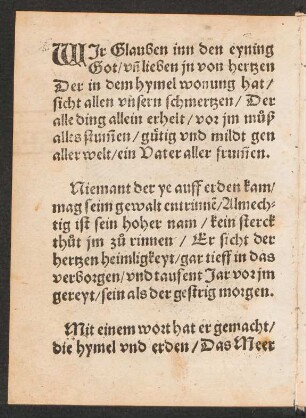 WIr Glauben inn den eyning
Got/vñ lieben jn von hertzen
Der in dem hymel wonung hat/
sicht allen vnsern schmertzen/ Der
alle ding allein erhelt/vor jm můß
alles stum̃en/gůtig vnd mildt gen
aller welt/ein Vater aller frum̃en.
Niemant der ye auff erden kam/
mag seim gewalt entrinnẽ/Almech-
tig ist sein hoher nam/kein sterck
thůt jm zů rinnen/ Er sicht der
hertzen heimligkeyt/gar tieff in das
verborgen/vnd tausent Jar vor jm
gereyt/sein als der gestrig morgen.
Mit einem wort hat er gemacht/
die hymel vnd erden/Das Meer